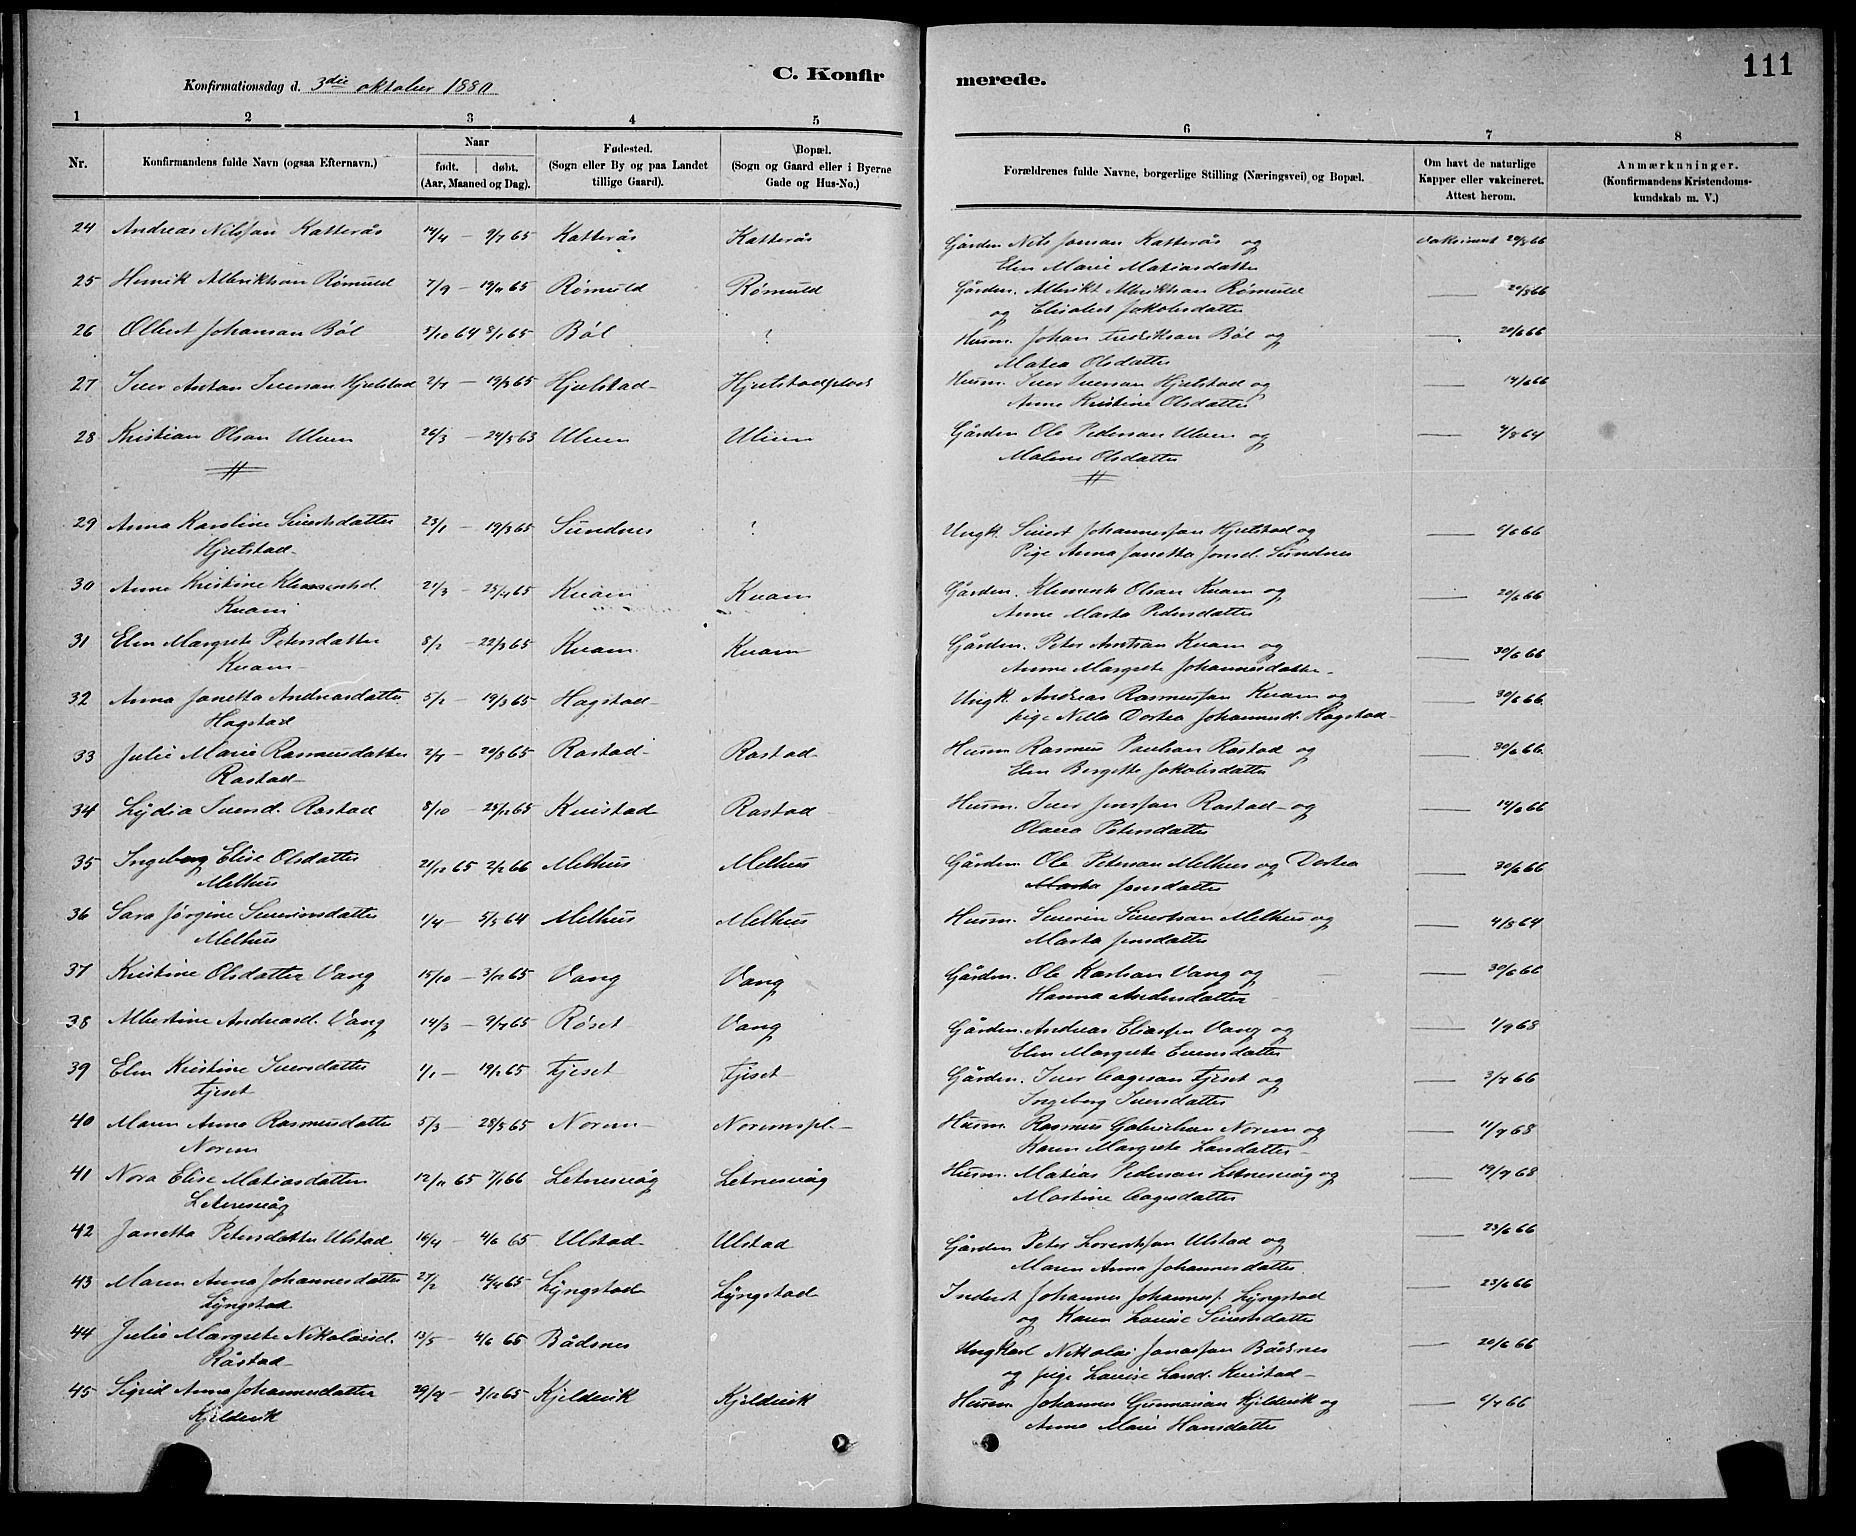 111
C. Konfirmerede.
Konfirmationsdag d. 3die oktober 1880
1 2 3 4 5 6 7 8
Nr. Konfirmandens fulde Navn (ogsaa Efternavn.) Naar født. døbt. (Aar, Maaned og Dag). Fødested. (Sogn eller By og paa Landet tillige Gaard). Bopæl. (Sogn og Gaard eller i Byerne Gade og Hus-No.) Forældrenes fulde Navne, borgerlige Stilling (Næringsvei) og Bopæl. Om havt de naturlige Kapper eller vakcineret. Attest herom. Anmærkninger. (Konfirmandens Kristendomskundskab m. V.)
24 Andreas Nilssan Katterås 14/4 — 9/7 65 Katterås Katterås Gården Nils Jonsan Katterås og vaksineret 20/8 66
Elen Marie Matiasdatter
25 Henrik Albriktsan Rømuld 7/9 — 19/11 65 Rømuld Rømuld Gården. Albrikt Albriktsan Rømuld — 20/8 66
og Elisabet Jakobsdatter
26 Olbert Johansan Bøl 5/10 64 8/1 65 Bøl ? Husm. Johan Fredriksan Bøl og — 20/6 66
Matea Olsdatter
27 Iver Antan Iversan Hjelstad 2/7 — 19/8 65 Hjelstad Hjelstadplads Husm. Iver Iversan Hjelstad og — 14/6 66
Anne Kristine Olsdatter
28 Kristian Olsan Ulven 26/3 — 24/5 63 Ulven Ulven Gården Ole Pedersan Ulven og — 4/8 64
Malene Olsdatter
29 Anna Karoline Sivertsdatter 23/1 — 19/3 65 Sundnes ? Ungk. Sivert Johannessan Hjelstad og — 6/6 66
Hjelstad Pige Anna Janetta Jonsd. Sundnes
30 Anne Kristine Klementsd. 21/3 — 23/4 65 Kvam Kvam Gården. Klement Olsan Kvam og — 20/6 66
Kvam Anne Marta Pedersdatter
31 Elen Margrete Petersdatter 8/2 — 22/3 65 Kvam Kvam Gården. Peter Antsan Kvam og — 30/6 66
Kvam Anne Margrete Johannesdatter
32 Anna Janetta Andreasdatter 5/2 — 19/3 65 Hagstad Ungk. Andreas Rasmussan Kvam og — 30/6 66
Hagstad pige Nella Dortea Johannesd. Hagstad
33 Julie Marie Rasmusdatter 2/7 — 20/8 65 Rostad Rostad Husm Rasmus Paulsan Rostad og — 30/6 66
Rostad Elen Bergitte Jakobsdatter
34 Lydia Iversd. Rostad 8/10 — 25/12 65 Kvistad Rostad Husm. Iver Jonssan Rostad og — 14/6 66
Olava Petersdatter
35 Ingeborg Elise Olsdatter 21/12 65 2/2 66 Melhus Melhus Gården Ole Petersan Melhus og Dortea — 30/6 66
Melhus Marta Jonsdatter
36 Sara Jørgine Severinsdatter 1/4 — 5/5 64 Melhus Melhus Husm. Severin Sivertsan Melhus og — 4/8 64
Melhus Marta Jonsdatter
37 Kristine Olsdatter Vang 15/10 — 3/12 65 Vang Vang Gården. Ole Karlsan Vang og — 30/6 66
Hanna Andersdatter
38 Albertine Andreasd. Vang 14/3 — 9/7 65 Røset Vang Gården. Andreas Eliassen Vang og — 1/9 68
Elen Margrete Evensdatter
39 Elen Kristine Iversdatter 1/1 — 19/2 65 Fjeset Fjeset Gården. Iver Aagesan Fjeset og — 3/7 66
Fjeset Ingeborg Iversdatter
40 Maren Anna Rasmusdatter 5/3 — 28/5 65 Norem Noremspl. Husm. Rasmus Gabrielsan Norem og — 11/7 68
Norem Karen Margrete Larsdatter
41 Nora Elise Matiasdatter 12/11 65 7/1 66 Letnesvåg Letnesvåg Husm. Matias Pedersan Letnesvåg og — 19/7 68
Letnesvåg Martine Aagesdatter
42 Janetta Petersdatter Ulstad 16/4 — 4/6 65 Ulstad Ulstad Gården Peter Lorentssan Ulstad og — 23/6 66
Maren Anna Johannesdatter
43 Maren Anna Johannesdatter 27/2 — 17/4 65 Lyngstad Lyngstad Inderst Johannes Johanness. Lyngstad — 23/6 66
Lyngstad og Karen Lovise Sivertsdatter
44 Julie Margrete Nikolaisd. 13/5 — 4/6 65 Bådsnes Ungkarl Nikolai Jonassan Bådsnes — 20/6 66
Råstad og pige Lovise Larsd. Kvistad
45 Sigrid Anna Johannesdatter 29/9 — 3/12 65 Kjeldvik Kjeldvik Husm Johannes Gunnarsan Kjeldvik og — 6/7 66
Kjeldvik Anna Marie Hansdatter